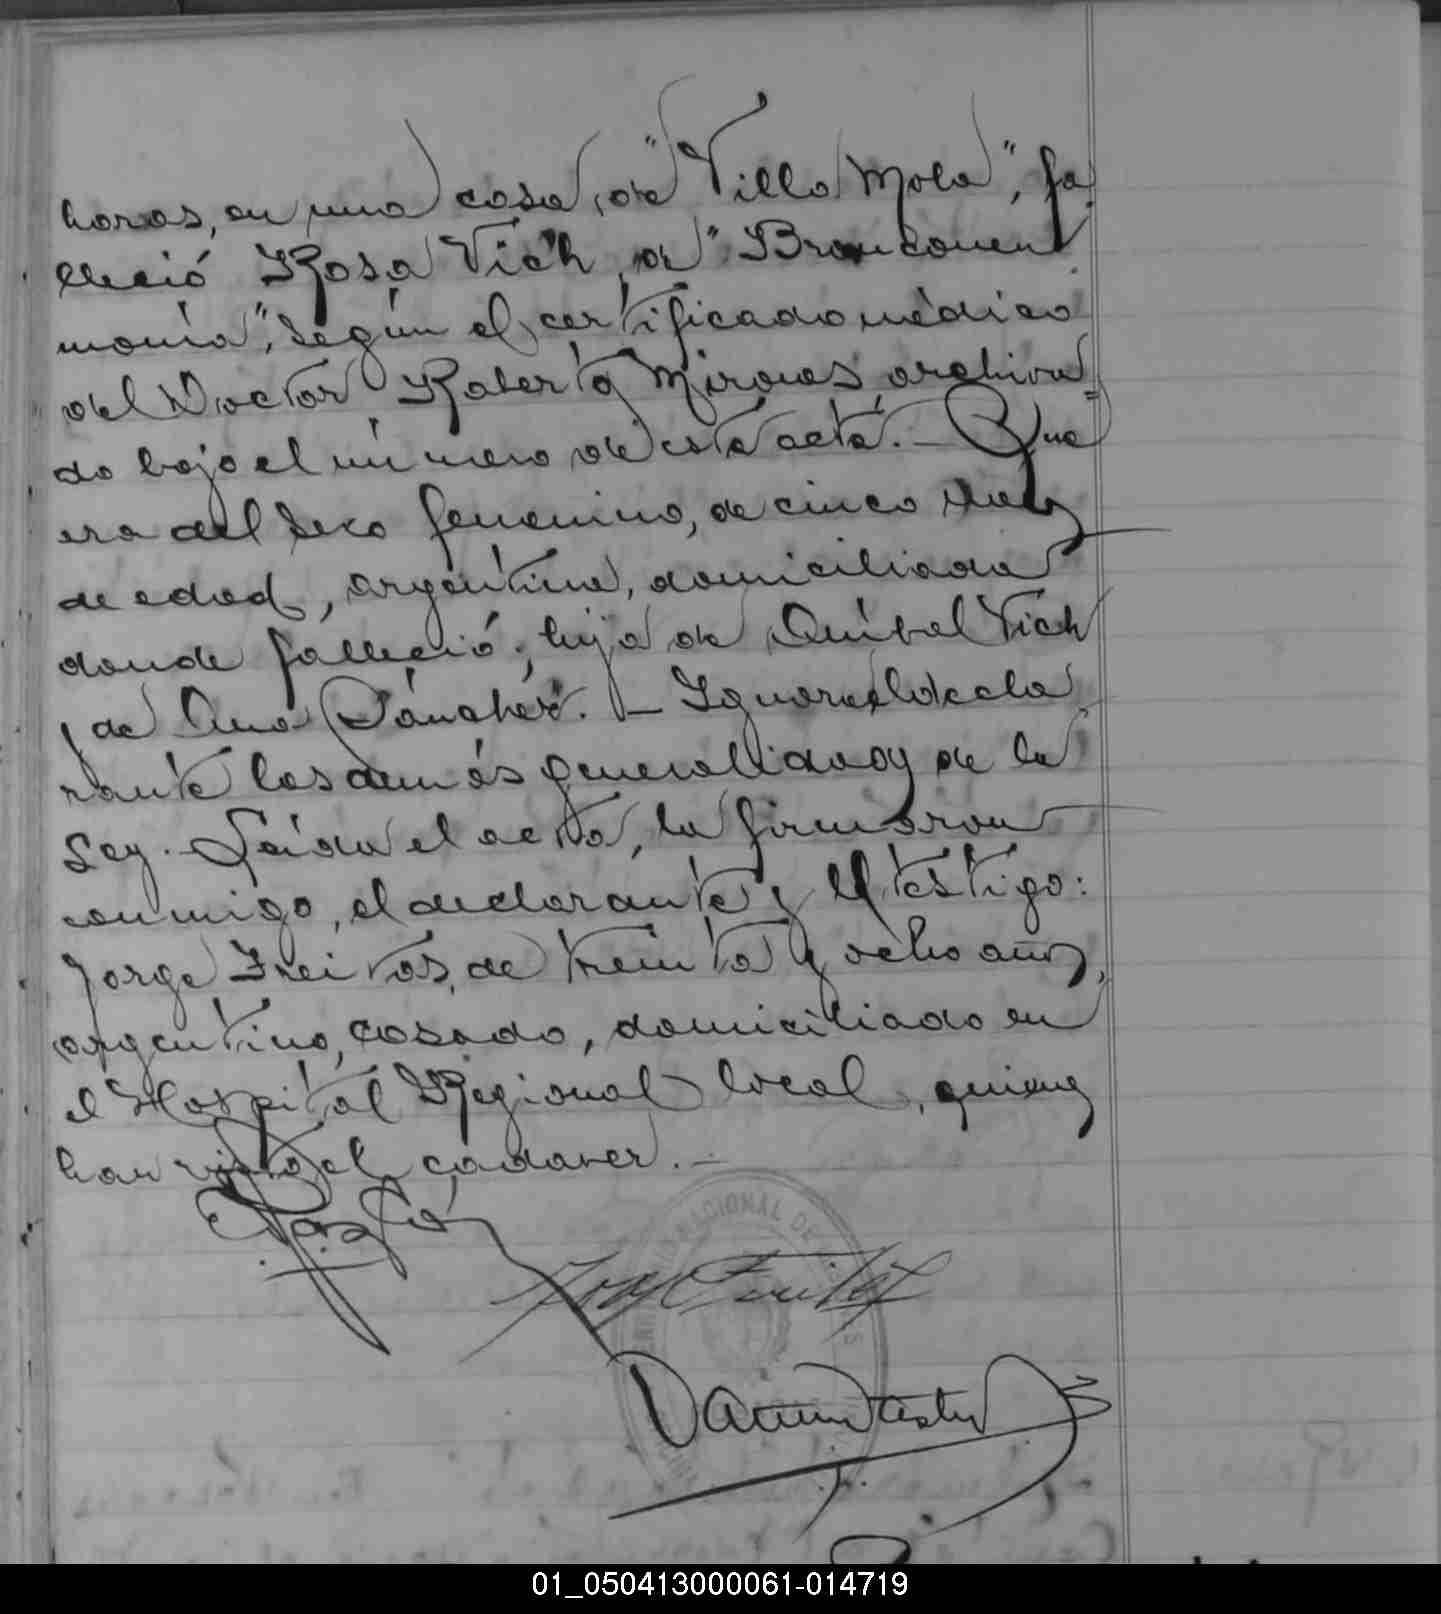 horas, en una casa de "Villa Mola", fa-
lleció Rosa Vich, de "Bronconeu
monía", según el certificado médico
del Doctor Roberto Mirones archiva=
do bajo el número de esta acta.- Que
era del sexo femenino, de cinco meses
de edad, argentina, domiciliada
donde falleció; hija de Aníbal Vich
y de Ana Sánchez. - Ignora el decla
rante las demás generalidades de la
Ley. Leída el acta, la firmaron
conmigo, el declarante y el testigo:
Jorge Freitas, de treinta y ocho años,
argentino, casado, domiciliado en
el Hospital Regional local, quienes
han visto el cadáver. -
01_050413000061-014719